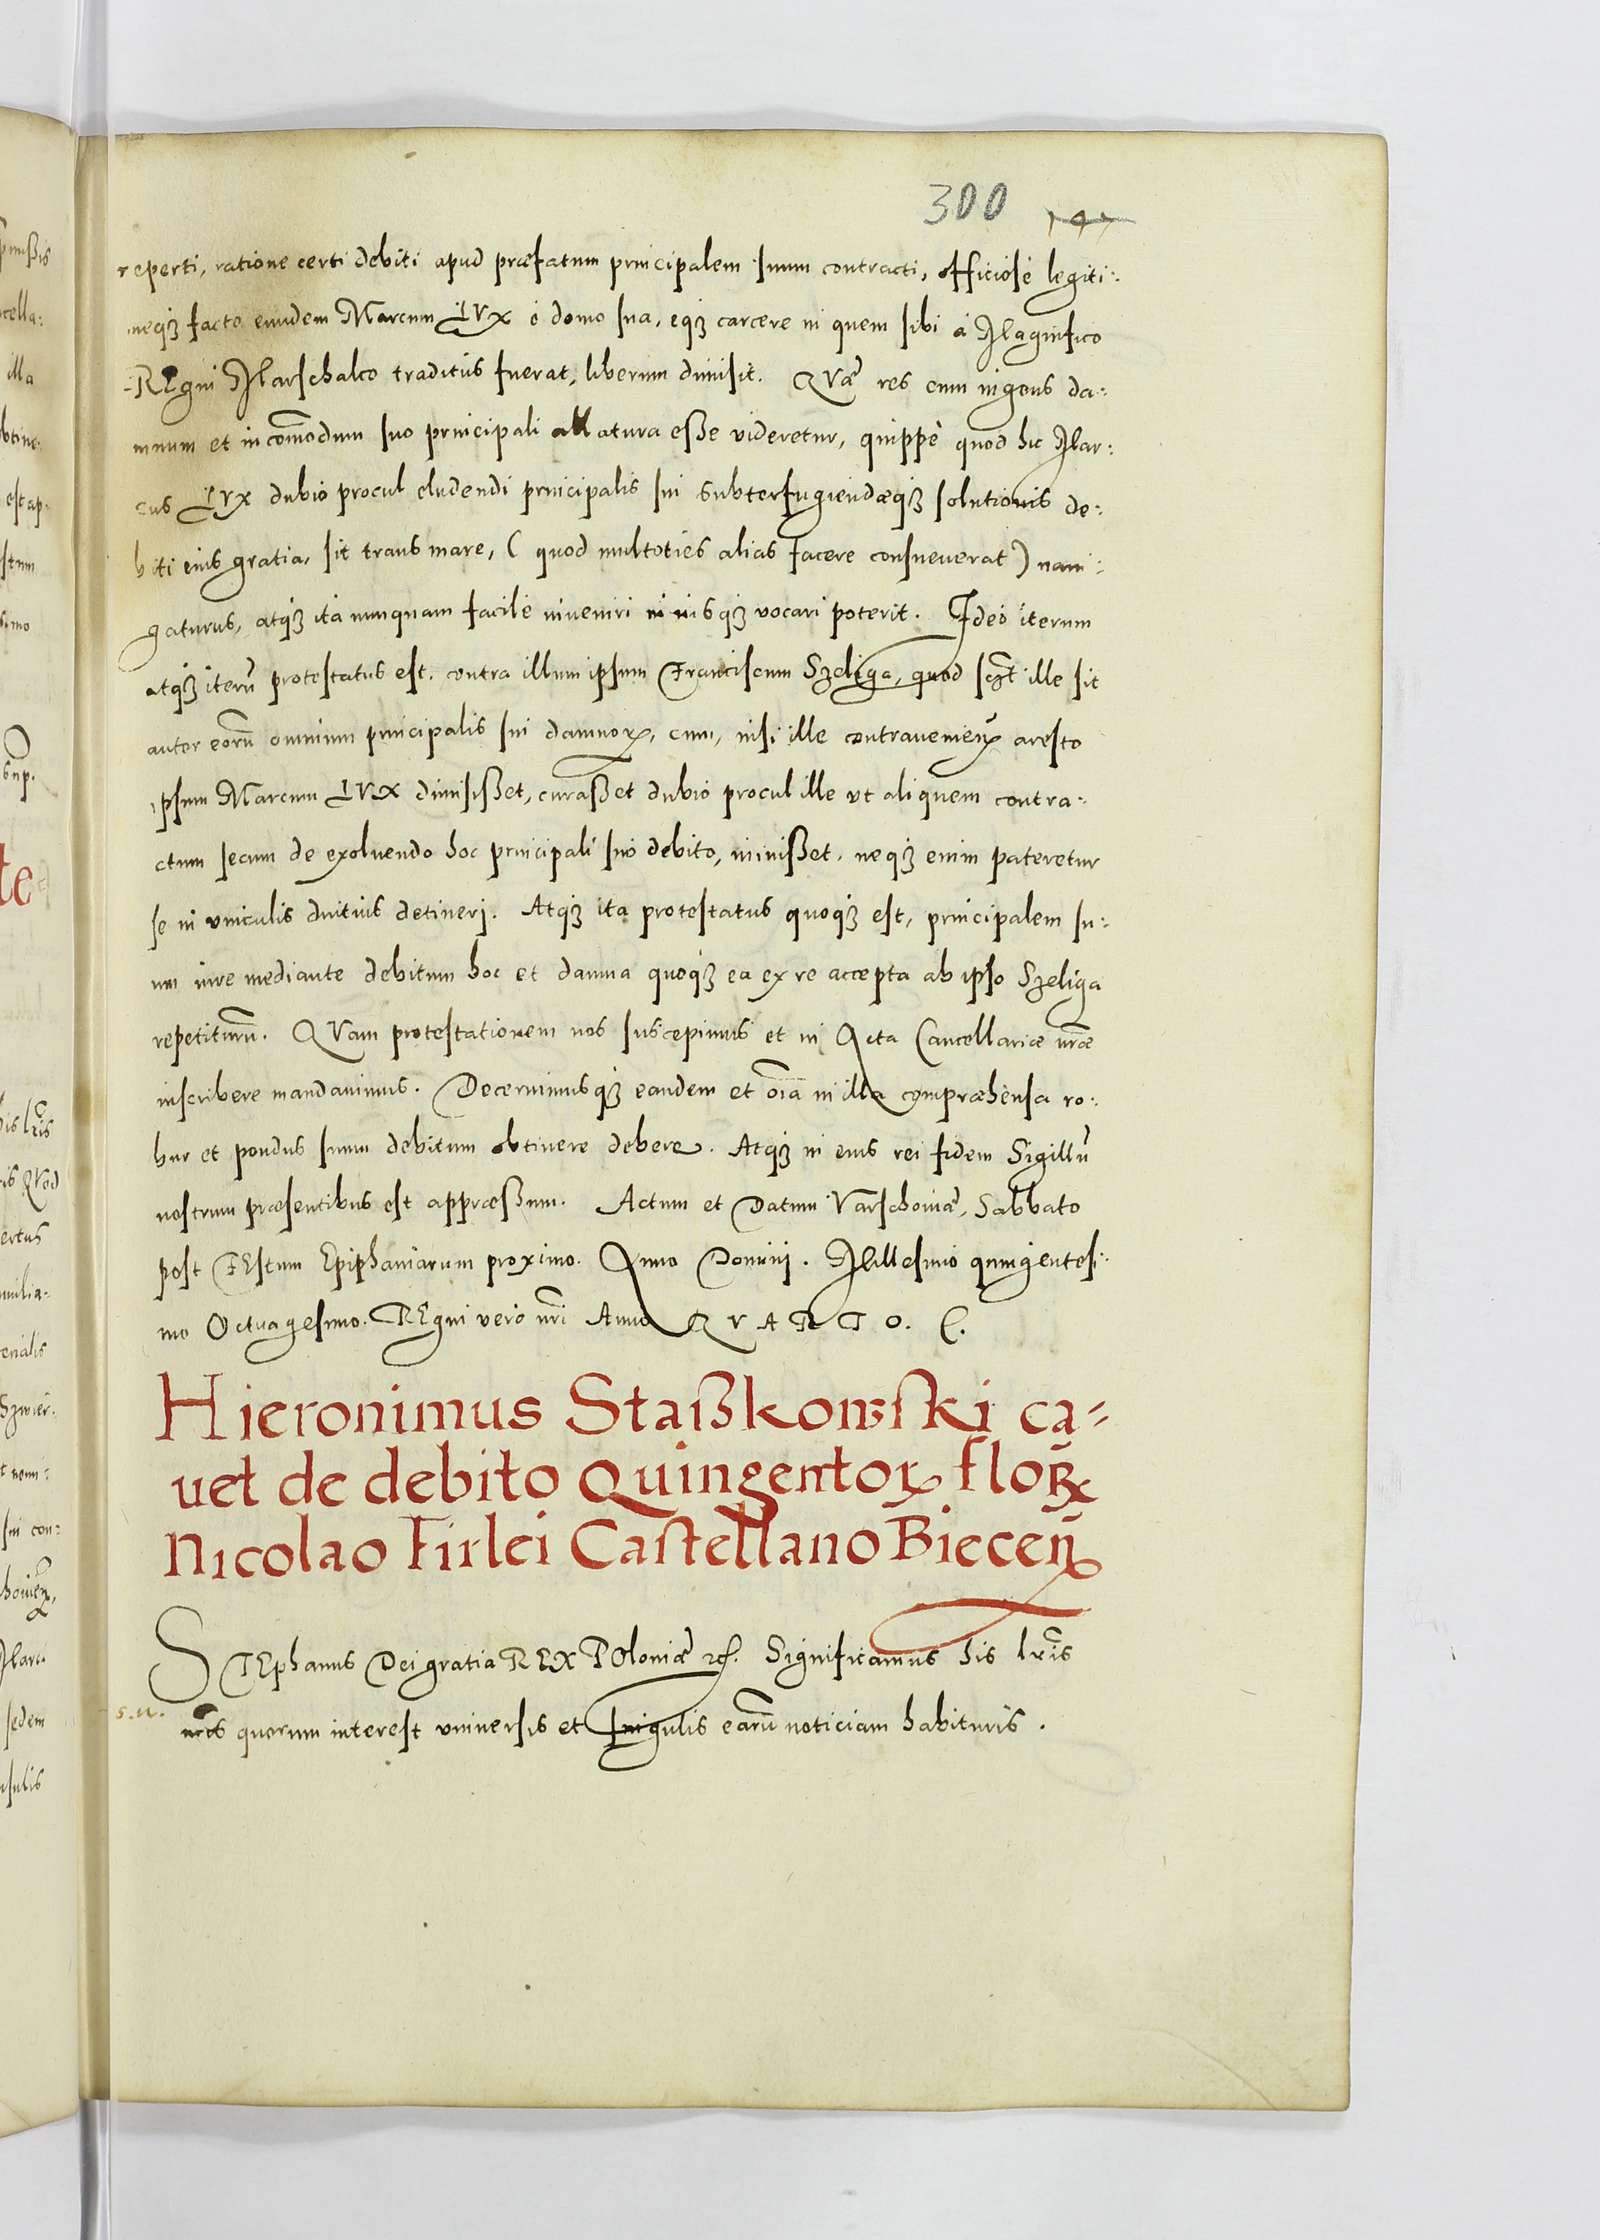 300 147
reperti, ratione certi debiti apud præfatum principalem suum contracti, officiosè legiti:
meq3 facto eundem Marcum LVX è domo sua, eq3 carcere in quem sibi à Magnifico
REgni Marschalco traditus fuerat, liberum dimisit. QVæ res cum ingens da:
mnum et incom̃odum suo principali allatura eße videretur, quippè quod hic Mar:
cus LVX dubiò procul eludendi principalis sui subterfugiendæq3 solutionis de:
biti eius gratia, sit trans mare, ( quod multoties alias facere consueuerat ) naui:
gaturus, atq3 ita nunquam facilè inueniri in iusq3 vocari poterit. Ideò iterum
atq3 iterũ protestatus est, contra illum ipsum Franciscum Szeliga, quod sczt ille sit
autor eorũ omnium principalis sui damnoꝝ, cum, nisi ille contraueniens aresto
ipsum Marcum LVX dimisißet, curaßet dubiò procul ille vt aliquem contra:
ctum secum de exoluendo hoc principali suo debito, inijßet, neq3 enim pateretur
se in vinculis diutius detinerj. Atq3 ita protestatus quoq3 est, principalem su:
um iure mediante debitum hoc et damna quoq3 ea ex re accepta ab ipso Szeliga
repetiturũ. QVam protestationem nos suscepimus et in Acta Cancellariæ nr̃æ
inscribere mandauimus. Decernimusq3 eandem et oĩa in illa compræhensa ro:
bur et pondus suum debitum obtinere debere. Atq3 in eius rei fidem Sigillũ
nostrum præsentibus est appræßum. Actum et Datum Varschouiæ, Sabbato
post FEstum Epiphaniarum proximo. Anno Dominj. Millesimo quingentesi:
mo Octuagesimo. REgni verò nr̃i Anno QVARTO.
Hieronimus Staßkowski ca-
uet de debito Quingentoꝝ floꝝ
Nicolao Firlei Castellano Biecen̄
STEphanus Dei gratia REX POloniæ &c. Significamus his lr̃is
s. n.
nr̃is quorum interest vniuersis et singulis earũ noticiam habituris.